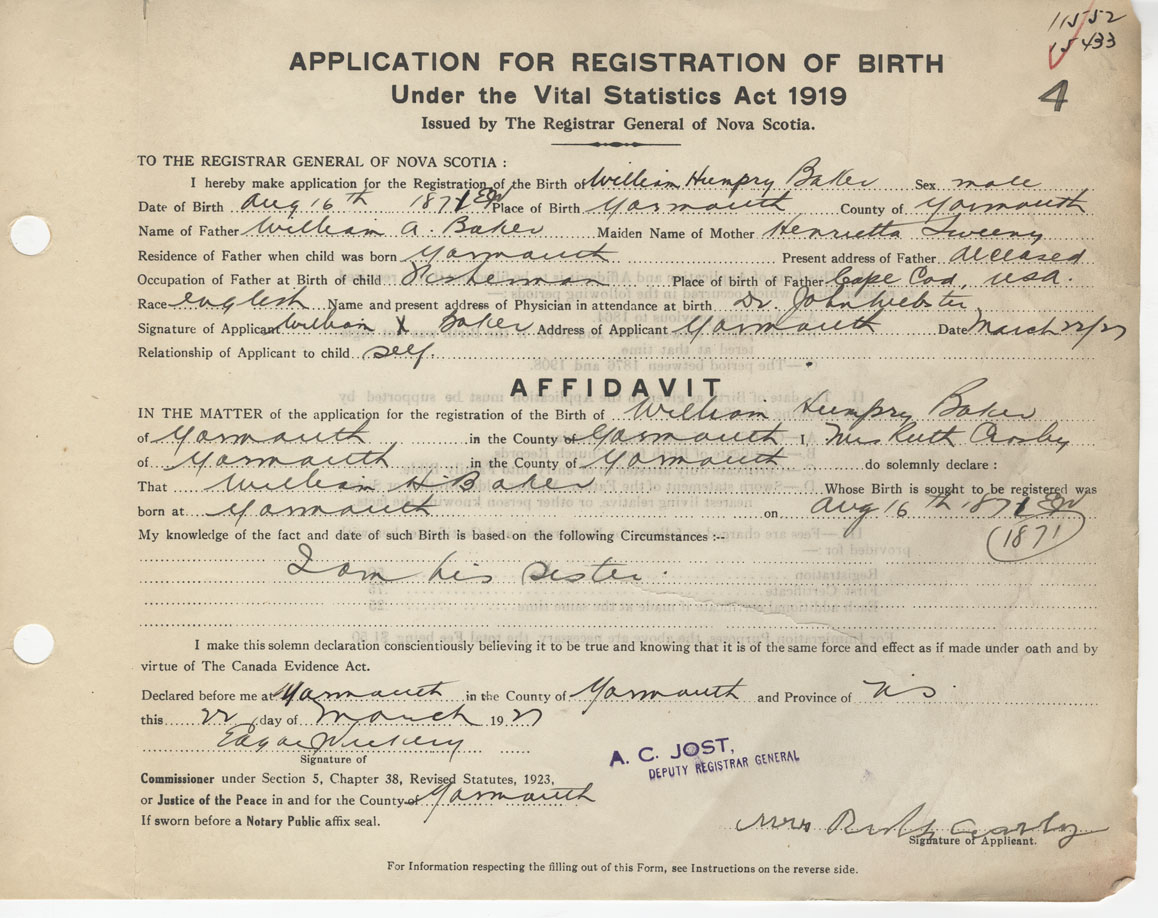 11552
15433
4
APPLICATION FOR REGISTRATION OF BIRTH
Under the Vital Statistics Act 1919
Issued by The Registrar General of Nova Scotia.
TO THE REGISTRAR GENERAL OF NOVA SCOTIA :
I hereby make application for the Registration of the Birth of William Humpry Baker Sex male
Date of Birth Aug 16th 1871 EW Place of Birth Yarmouth County of Yarmouth
Name of Father William A. Baker Maiden Name of Mother Henrietta Sweeny
Residence of Father when child was born Yarmouth Present address of Father deceased
Occupation of Father at Birth of child Fisherman Place of birth of Father Cape Cod, USA.
Race english Name and present address of Physician in attendance at birth Dr. John Webster
Signature of Applicant William X Baker Address of Applicant Yarmouth Date March 22/27
Relationship of Applicant to child self.
AFFIDAVIT
IN THE MATTER of the application for the registration of the Birth of William Humpry Baker
of Yarmouth in the County of Yarmouth I, Mrs Ruth Crosby
of Yarmouth in the County of Yarmouth do solemnly declare :
That William H. Baker Whose Birth is sought to be registered was
born at Yarmouth on Aug 16th 1871 EW
My knowledge of the fact and date of such Birth is based on the following Circumstances :-- 1871
I am his sister.
I make this solemn declaration conscientiously believing it to be true and knowing that it is of the same force and effect as if made under oath and by
virtue of The Canada Evidence Act.
Declared before me at Yarmouth in the County of Yarmouth and Province of N.S.
this 22 day of March 1927
Edgar Vickery
Signature of
A. C. JOST,
DEPUTY REGISTRAR GENERAL
Commissioner under Section 5, Chapter 38, Revised Statutes, 1923,
or Justice of the Peace in and for the County of Yarmouth
If sworn before a Notary Public affix seal.
Mrs Ruth Crosby
Signature of Applicant.
For Information respecting the filling out of this Form, see Instructions on the reverse side.